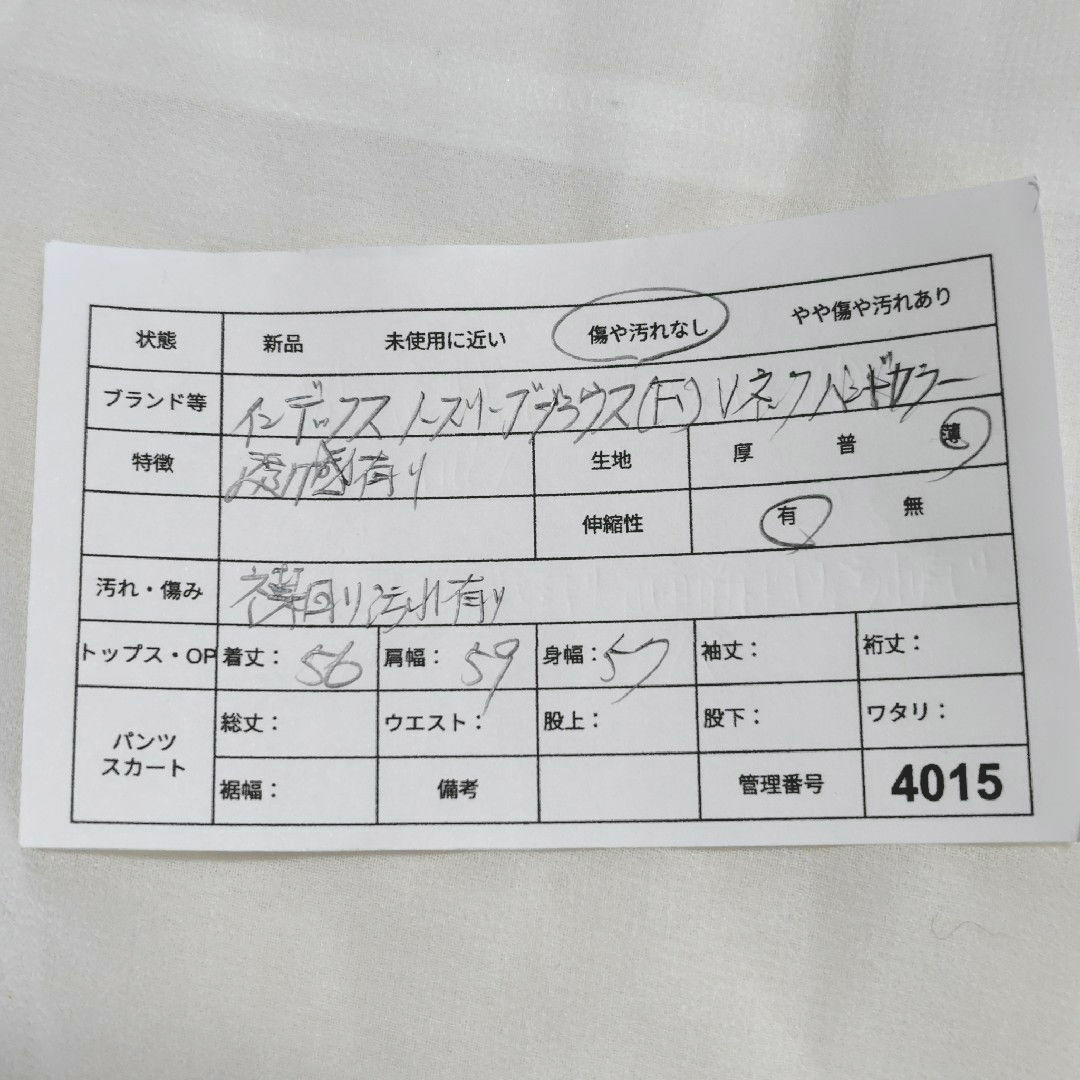 状態 新品 未使用に近い 傷や汚れなし やや傷や汚れあり
ブランド等 インデックス ノースリーブブラウス(F) Vネック バンドカラー
特徴 透け感有り 生地 厚 普 薄
伸縮性 有 無
汚れ・傷み 襟回り汚れ有り
トップス・OP 着丈: 56 肩幅: 59 身幅: 57 袖丈: 裄丈:
パンツ スカート 総丈: ウエスト: 股上: 股下: ワタリ:
裾幅: 備考 管理番号 4015